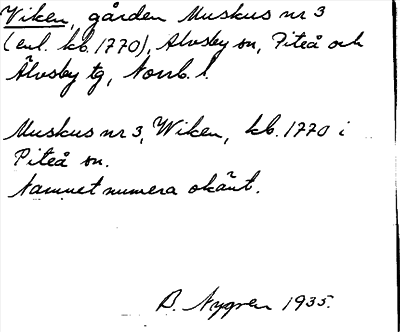 Viken, gården Muskus nr 3
(enl. kb. 1770), Älvsby sn, Piteå och
Älvsby tg, Norrb. l.
Muskus nr 3, Wiken, kb. 1770 i
Piteå sn.
Namnet numera okänt.
B. Nygren 1935.